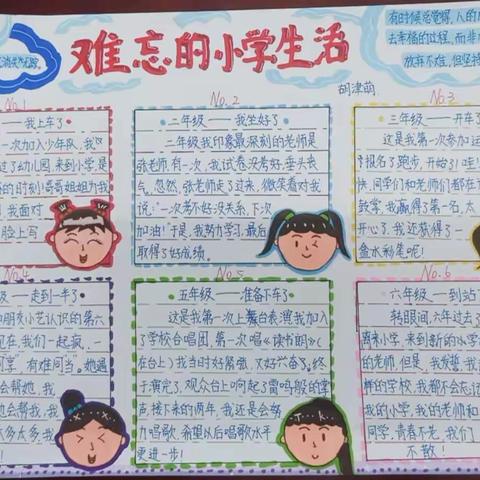 难忘的小学生活
胡津萌
有时候总觉得,人的
去幸福的过程,而非
放弃不难,但坚持
No.1
我上车了
一次加入少年队,我
过了幼儿园,来到小学,是
的时刻哥哥姐姐为我
我面对
脸上写
No.2
二年级——我坐好了
二年级我印象最深刻的老师是
张老师,有一次,我试卷没考好,垂头丧
气,忽然,张老师走了过来,微笑着对我
说:“一次考不好没关系,下次
加油!”于是,我努力学习,最后
取得了好成绩。
No.3
三年级——开车了
这是我第一次参加运
报名了跑步,开始了!哇!
快,同学们和老师们都在
鼓掌,我赢得了第一名,太
开心了,我还获得了一
盒水彩笔呢!
No.4
级——走到一半了
和朋友小艺认识的第六
现在,我们一起疯,一
同享,有难同当。她遇
会帮她,我
会帮我,我
太多太多,我
No.5
五年级——准备下车了
这是我第一次上舞台表演,我加入
了学校合唱团,第一次唱《读书郎》(
在台上)我当时好紧张,又好兴奋了。终
于演完了,观众台上响起了雷鸣般的掌
声,接下来的两年,我还是会努
力唱歌,希望以后唱歌水平
更进一步!
No.6
六年级——到站了
转眼间,六年过去了
离来小学,来到新的
的老师,但是,我发誓,
样的学校,我都不会忘记
我的小学,我的老师和
同学,青春不老,我们
不散!